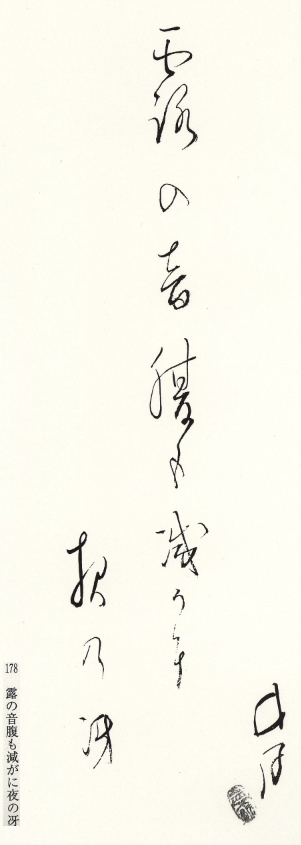 露の音腹も減がに
夜乃冴
178 露の音腹も減がに夜の冴